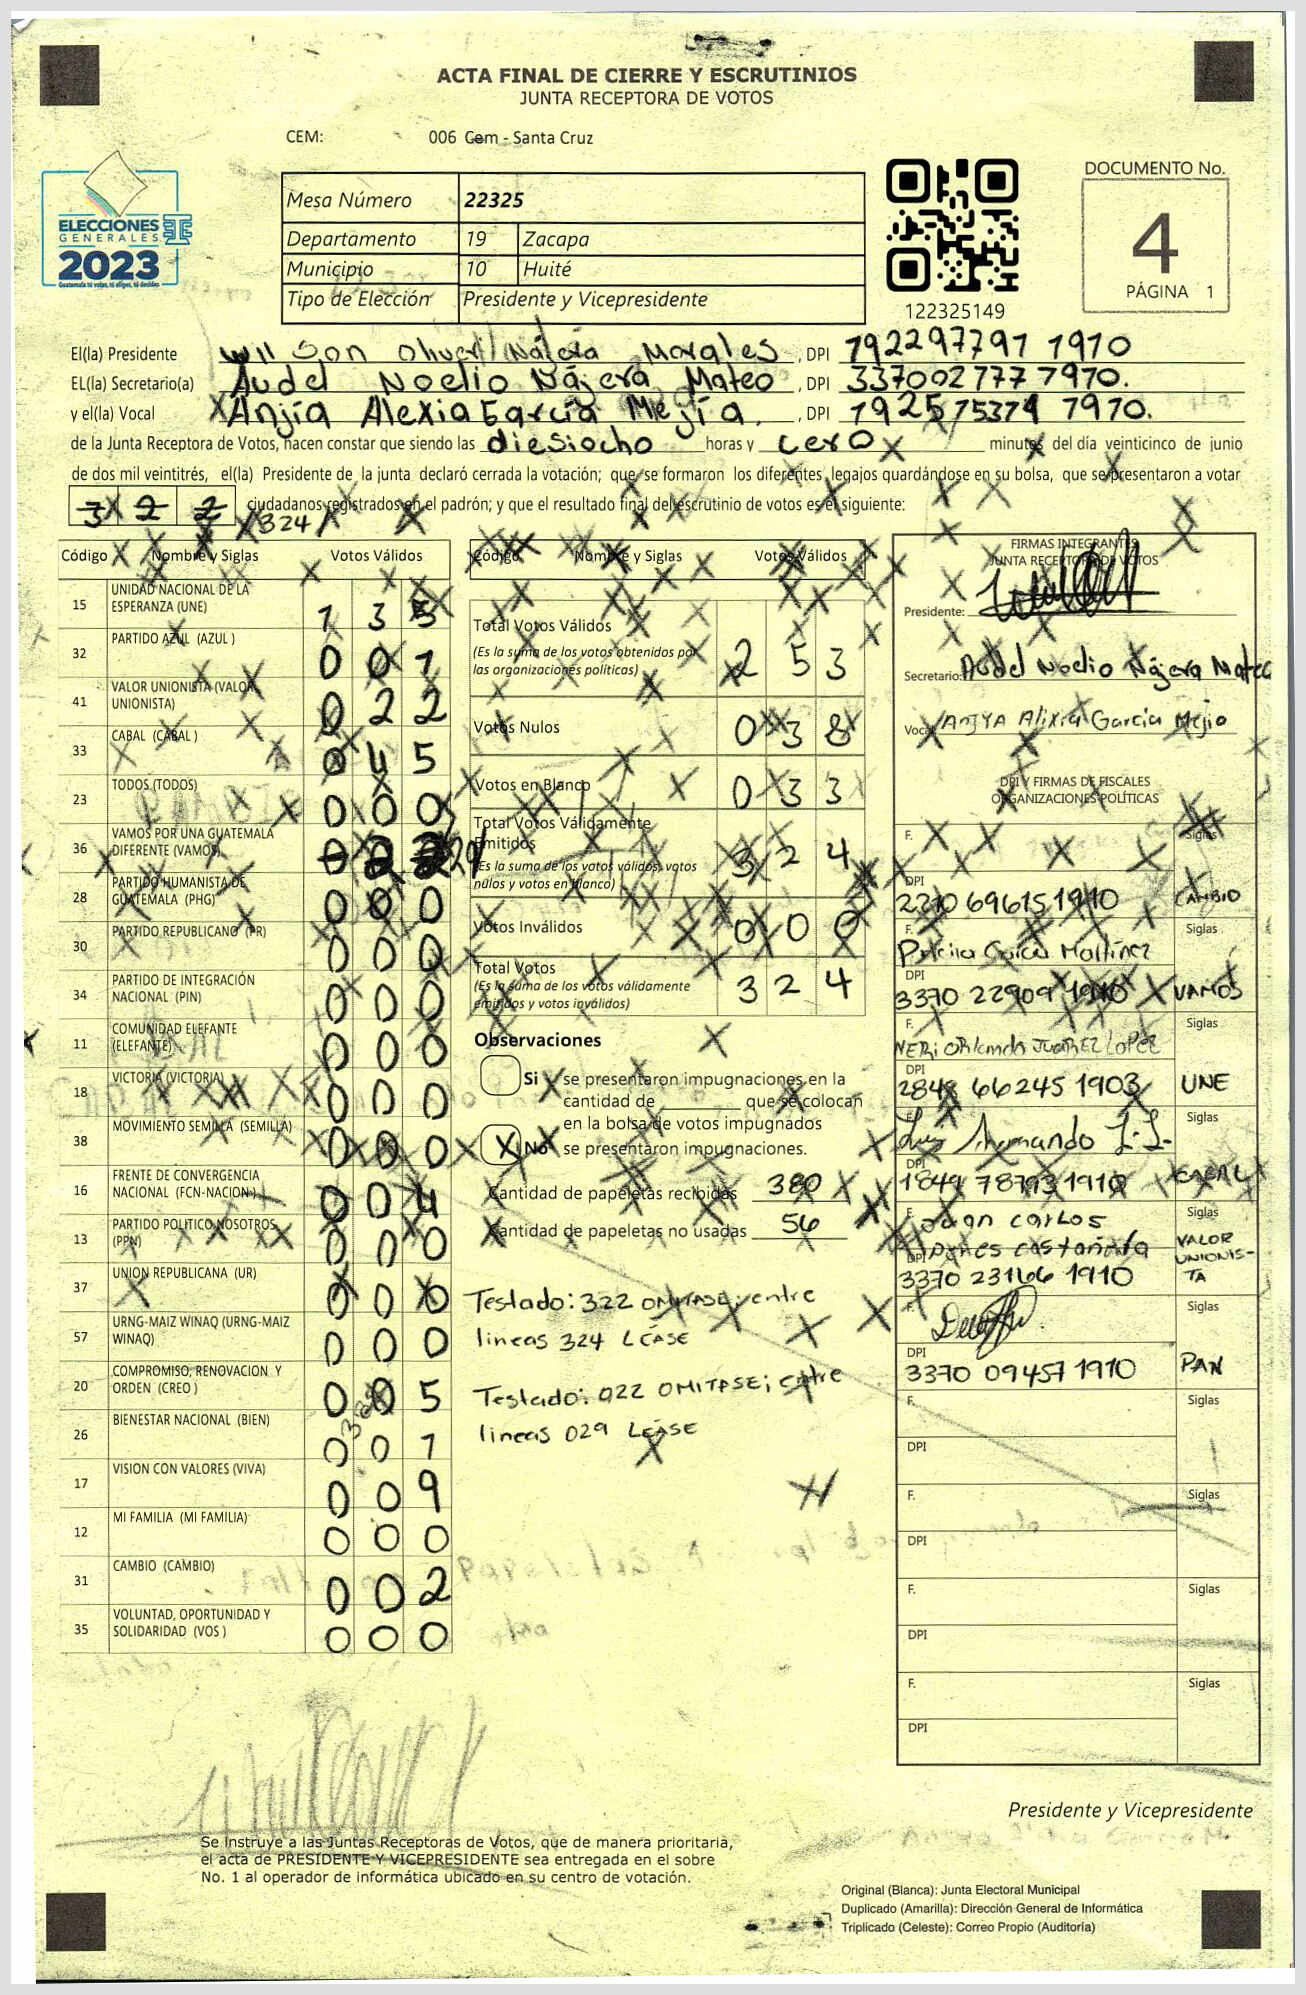 ACTA FINAL DE CIERRE Y ESCRUTINIOS
JUNTA RECEPTORA DE VOTOS
CEM: 006 Cem - Santa Cruz
ELECCIONES
GENERALES
2023
Guatemala tú votas, tú eliges, tú decides
Mesa Número 22325
Departamento 19 Zacapa
Municipio 10 Huité
Tipo de Elección Presidente y Vicepresidente
122325149
DOCUMENTO No.
4
PÁGINA 1
El(la) Presidente Nájera Morales, DPI 192297791 1910
EL(la) Secretario(a) Audel Noelio Nájera Mateo, DPI 337002777 7970.
y el(la) Vocal Anjía Alexia García Mejía., DPI 7970.
de la Junta Receptora de Votos, hacen constar que siendo las diesiocho horas y cero minutos del día veinticinco de junio
de dos mil veintitrés, el(la) Presidente de la junta declaró cerrada la votación; que se formaron los diferentes legajos guardándose en su bolsa, que se presentaron a votar
3 2 2 ciudadanos registrados en el padrón; y que el resultado final del escrutinio de votos es el siguiente:
324
Código Nombre y Siglas Votos Válidos
15 UNIDAD NACIONAL DE LA ESPERANZA (UNE) 1 3 5
32 PARTIDO AZUL (AZUL ) 0 0 1
41 VALOR UNIONISTA (VALOR UNIONISTA) 0 2 2
33 CABAL (CABAL ) 0 4 5
23 TODOS (TODOS) 0 0 0
36 VAMOS POR UNA GUATEMALA DIFERENTE (VAMOS) 0 2 2 029
28 PARTIDO HUMANISTA DE GUATEMALA (PHG) 0 0 0
30 PARTIDO REPUBLICANO (PR) 0 0 0
34 PARTIDO DE INTEGRACIÓN NACIONAL (PIN) 0 0 0
11 COMUNIDAD ELEFANTE (ELEFANTE) 0 0 0
18 VICTORIA (VICTORIA) 0 0 0
38 MOVIMIENTO SEMILLA (SEMILLA) 0 0 0
16 FRENTE DE CONVERGENCIA NACIONAL (FCN-NACION ) 0 0 4
13 PARTIDO POLITICO NOSOTROS (PPN) 0 0 0
37 UNION REPUBLICANA (UR) 0 0 0
57 URNG-MAIZ WINAQ (URNG-MAIZ WINAQ) 0 0 0
20 COMPROMISO, RENOVACION Y ORDEN (CREO ) 0 0 5
26 BIENESTAR NACIONAL (BIEN) 0 0 1
17 VISION CON VALORES (VIVA) 0 0 9
12 MI FAMILIA (MI FAMILIA) 0 0 0
31 CAMBIO (CAMBIO) 0 0 2
35 VOLUNTAD, OPORTUNIDAD Y SOLIDARIDAD (VOS ) 0 0 0
Código Nombre y Siglas Votos Válidos
Total Votos Válidos 2 5 3
(Es la suma de los votos obtenidos por
las organizaciones políticas)
Votos Nulos 0 3 8
Votos en Blanco 0 3 3
Total Votos Válidamente
Emitidos 3 2 4
(Es la suma de los votos válidos, votos
nulos y votos en blanco)
Votos Inválidos 0 0 0
Total Votos 3 2 4
(Es la suma de los votos válidamente
emitidos y votos inválidos)
Observaciones
Si se presentaron impugnaciones en la
cantidad de que se colocan
en la bolsa de votos impugnados
X No se presentaron impugnaciones.
Cantidad de papeletas recibidas 380
Cantidad de papeletas no usadas 56
Testado: 322 OMITASE; entre
lineas 324 LÉASE
Testado: 022 OMITASE; entre
lineas 029 LÉASE
FIRMAS INTEGRANTES
JUNTA RECEPTORA DE VOTOS
Presidente:
Secretario: Audel Noelio Nájera Mateo
Vocal ANJYA Alixia García Mejio
DPI Y FIRMAS DE FISCALES
ORGANIZACIONES POLÍTICAS
F. Siglas
DPI 2270 69615 1910 CAMBIO
F. García Martínez Siglas
DPI 3370 22909 1910 VAMOS
F. NERI Orlando JUAREZ LOPEZ Siglas
DPI 2848 66245 1903 UNE
F. Luis Armando Siglas
DPI 1849 78793 1910 CABAL
F. Juan Carlos Siglas
Castañeda VALOR UNIONIS-TA
DPI 3370 23166 1910
F. Siglas
DPI 3370 09457 1910 PAN
F. Siglas
DPI
F. Siglas
DPI
F. Siglas
DPI
F. Siglas
DPI
Presidente y Vicepresidente
Se instruye a las Juntas Receptoras de Votos, que de manera prioritaria,
el acta de PRESIDENTE Y VICEPRESIDENTE sea entregada en el sobre
No. 1 al operador de informática ubicado en su centro de votación.
Original (Blanca): Junta Electoral Municipal
Duplicado (Amarilla): Dirección General de Informática
Triplicado (Celeste): Correo Propio (Auditoría)